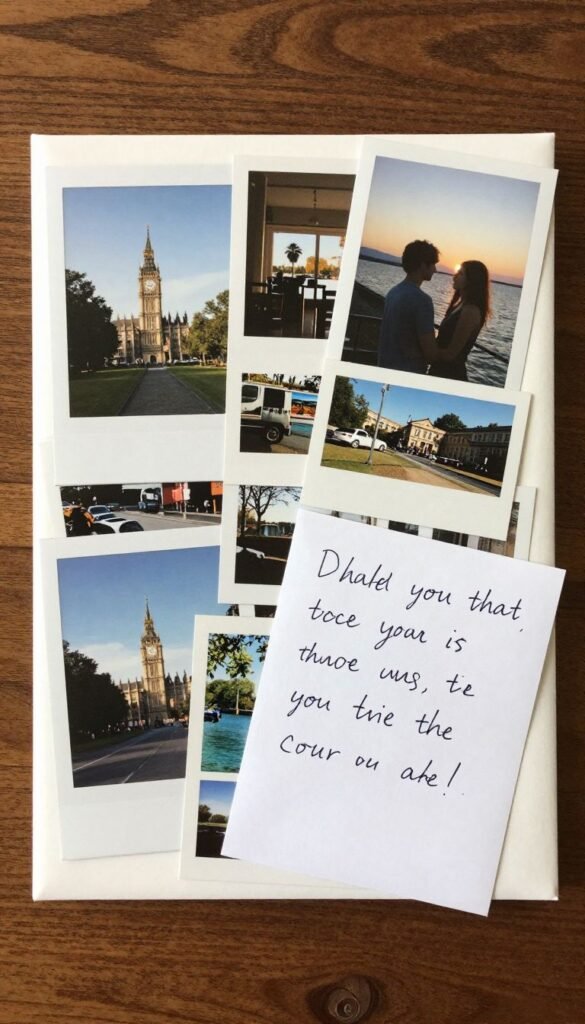 Dhald you that,
toce your is
thuoe uus, te
you trie the
cour ou ate!